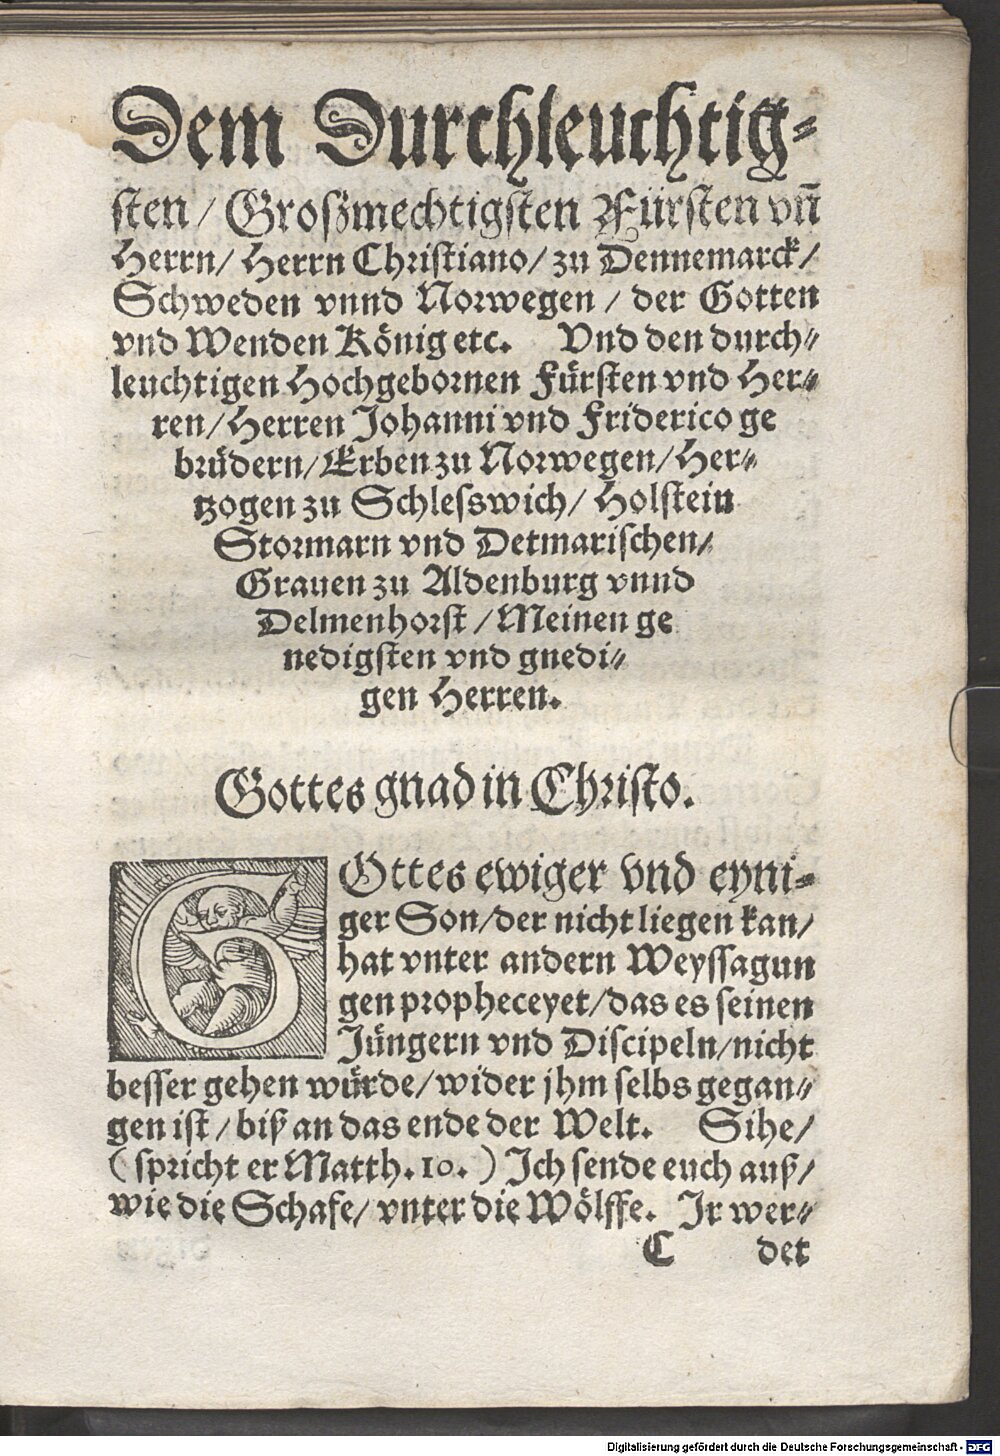 Dem Durchleuchtig-
sten / Großmechtigsten Fürsten vn̄
Herrn/ Herrn Christiano/ zu Dennemarck/
Schweden vnnd Norwegen / der Gotten
vnd Wenden König etc. Vnd den durch-
leuchtigen Hochgebornen Fürsten vnd Her-
ren/Herren Johanni vnd Friderico ge
brüdern/Erben zu Norwegen/Her-
tzogen zu Schlesswich/ Holstein
Stormarn vnd Detmarischen/
Grauen zu Aldenburg vnnd
Delmenhorst /Meinen ge
nedigsten vnd gnedi-
gen Herren.
Gottes gnad in Christo.
GOttes ewiger vnd eyni-
ger Son/der nicht liegen kan/
hat vnter andern Weyssagun
gen propheceyet/das es seinen
Jüngern vnd Discipeln/nicht
besser gehen würde/wider jhm selbs gegan-
gen ist / biß an das ende der Welt. Sihe/
( spricht er Matth.10. ) Ich sende euch auß/
wie die Schafe/ vnter die Wölffe. Ir wer-
C det
Digitalisierung gefördert durch die Deutsche Forschungsgemeinschaft - DFG